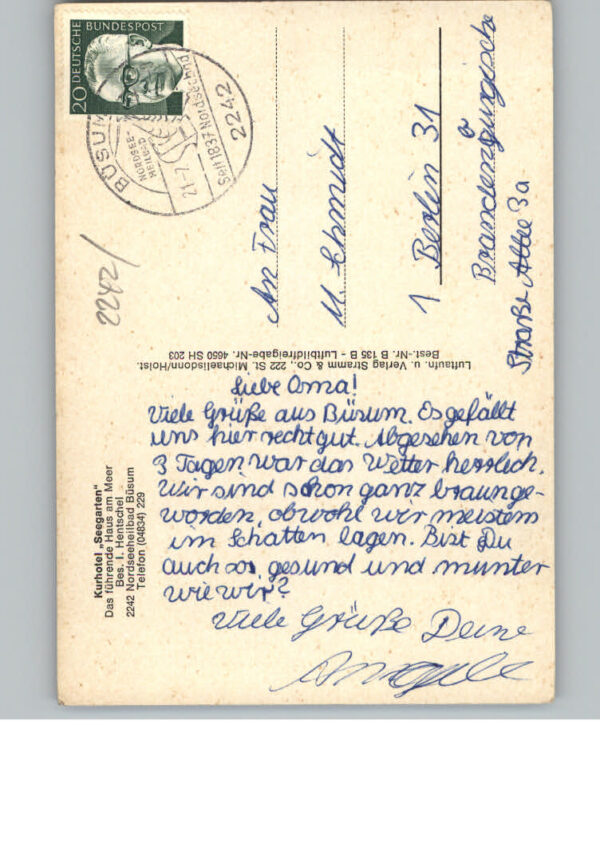 Kurhotel „Seegarten"
Das führende Haus am Meer
Bes. I. Hentschel
2242 Nordseeheilbad Büsum
Telefon (04834) 229
Liebe Oma!
Viele Grüße aus Büsum. Es gefällt
uns hier recht gut. Abgesehen von
3 Tagen war das Wetter herrlich.
Wir sind schon ganz braunge-
worden, obwohl wir meistens
im Schatten lagen. Bist Du
auch so gesund und munter
wie wir?
Viele Grüße Deine
Luftaufn. u. Verlag Stramm & Co., 222 St. Michaelisdonn/Holst.
Best.-Nr. B 135 B - Luftbildfreigabe-Nr. 4650 SH 203
20 DEUTSCHE BUNDESPOST
BÜSUM
NORDSEE-
HEILBAD
21-7
Seit 1837 Nordseebad
2242
2242/
An Frau
M. Schmidt
1 Berlin 31
Brandenburgische
Straße
3a